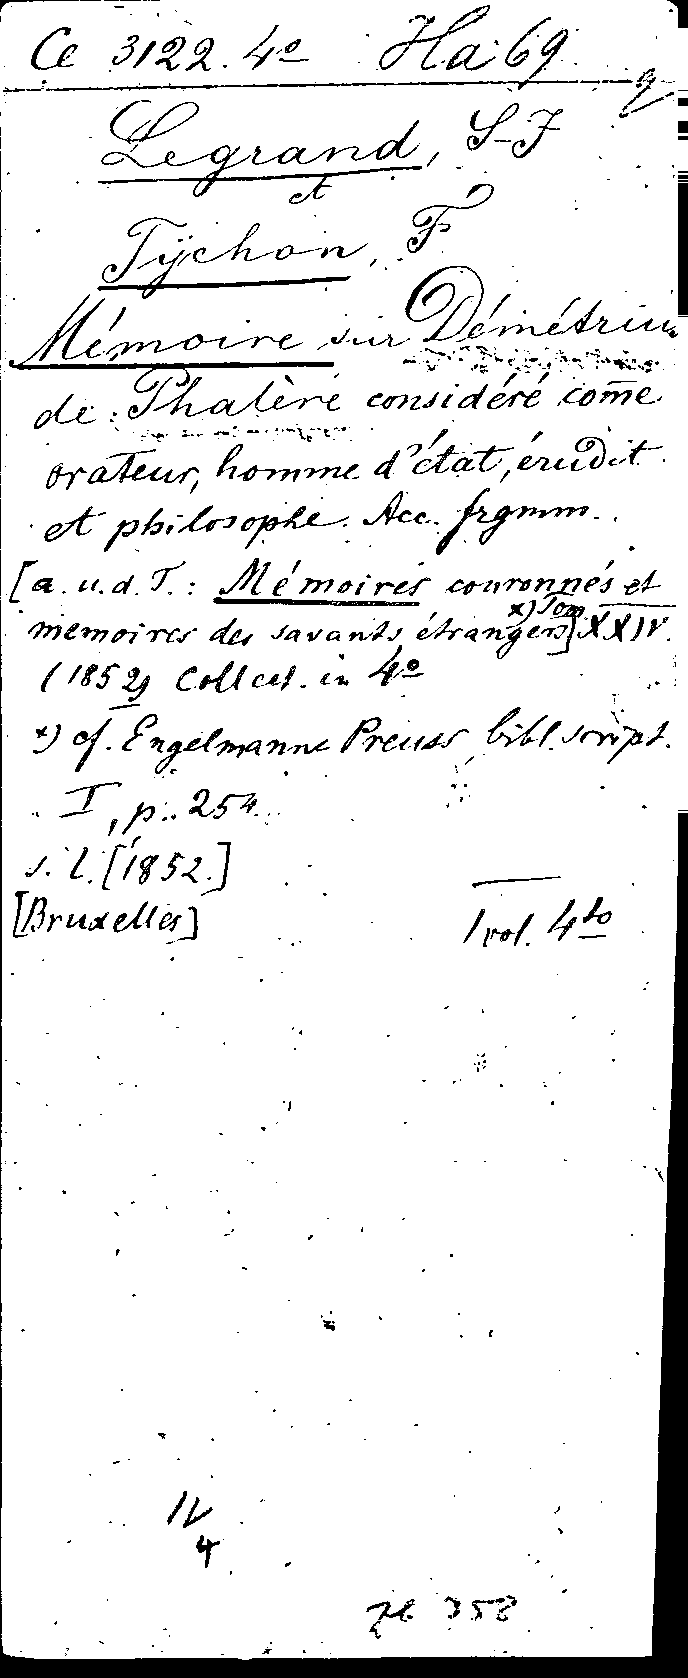 Ce 3122. 4º Ha 69
q
Legrand, S-J
et
Tychon, F
Mémoire sur Démétrius
de Phalère considéré com̄e
orateur, homme d'état, érudit
et philosophe. Acc. frgmm.
[a. u. d. T.: Mémoires couronnés et
x) Tom
memoires des savants étrangers] XXIV.
(1852) Collect. in 4º
x) cf. Engelmann Preuss, bibl. script.
I, p. 254.
s. l. [1852.]
[Bruxelles]
1 vol. 4to
IV
4
358